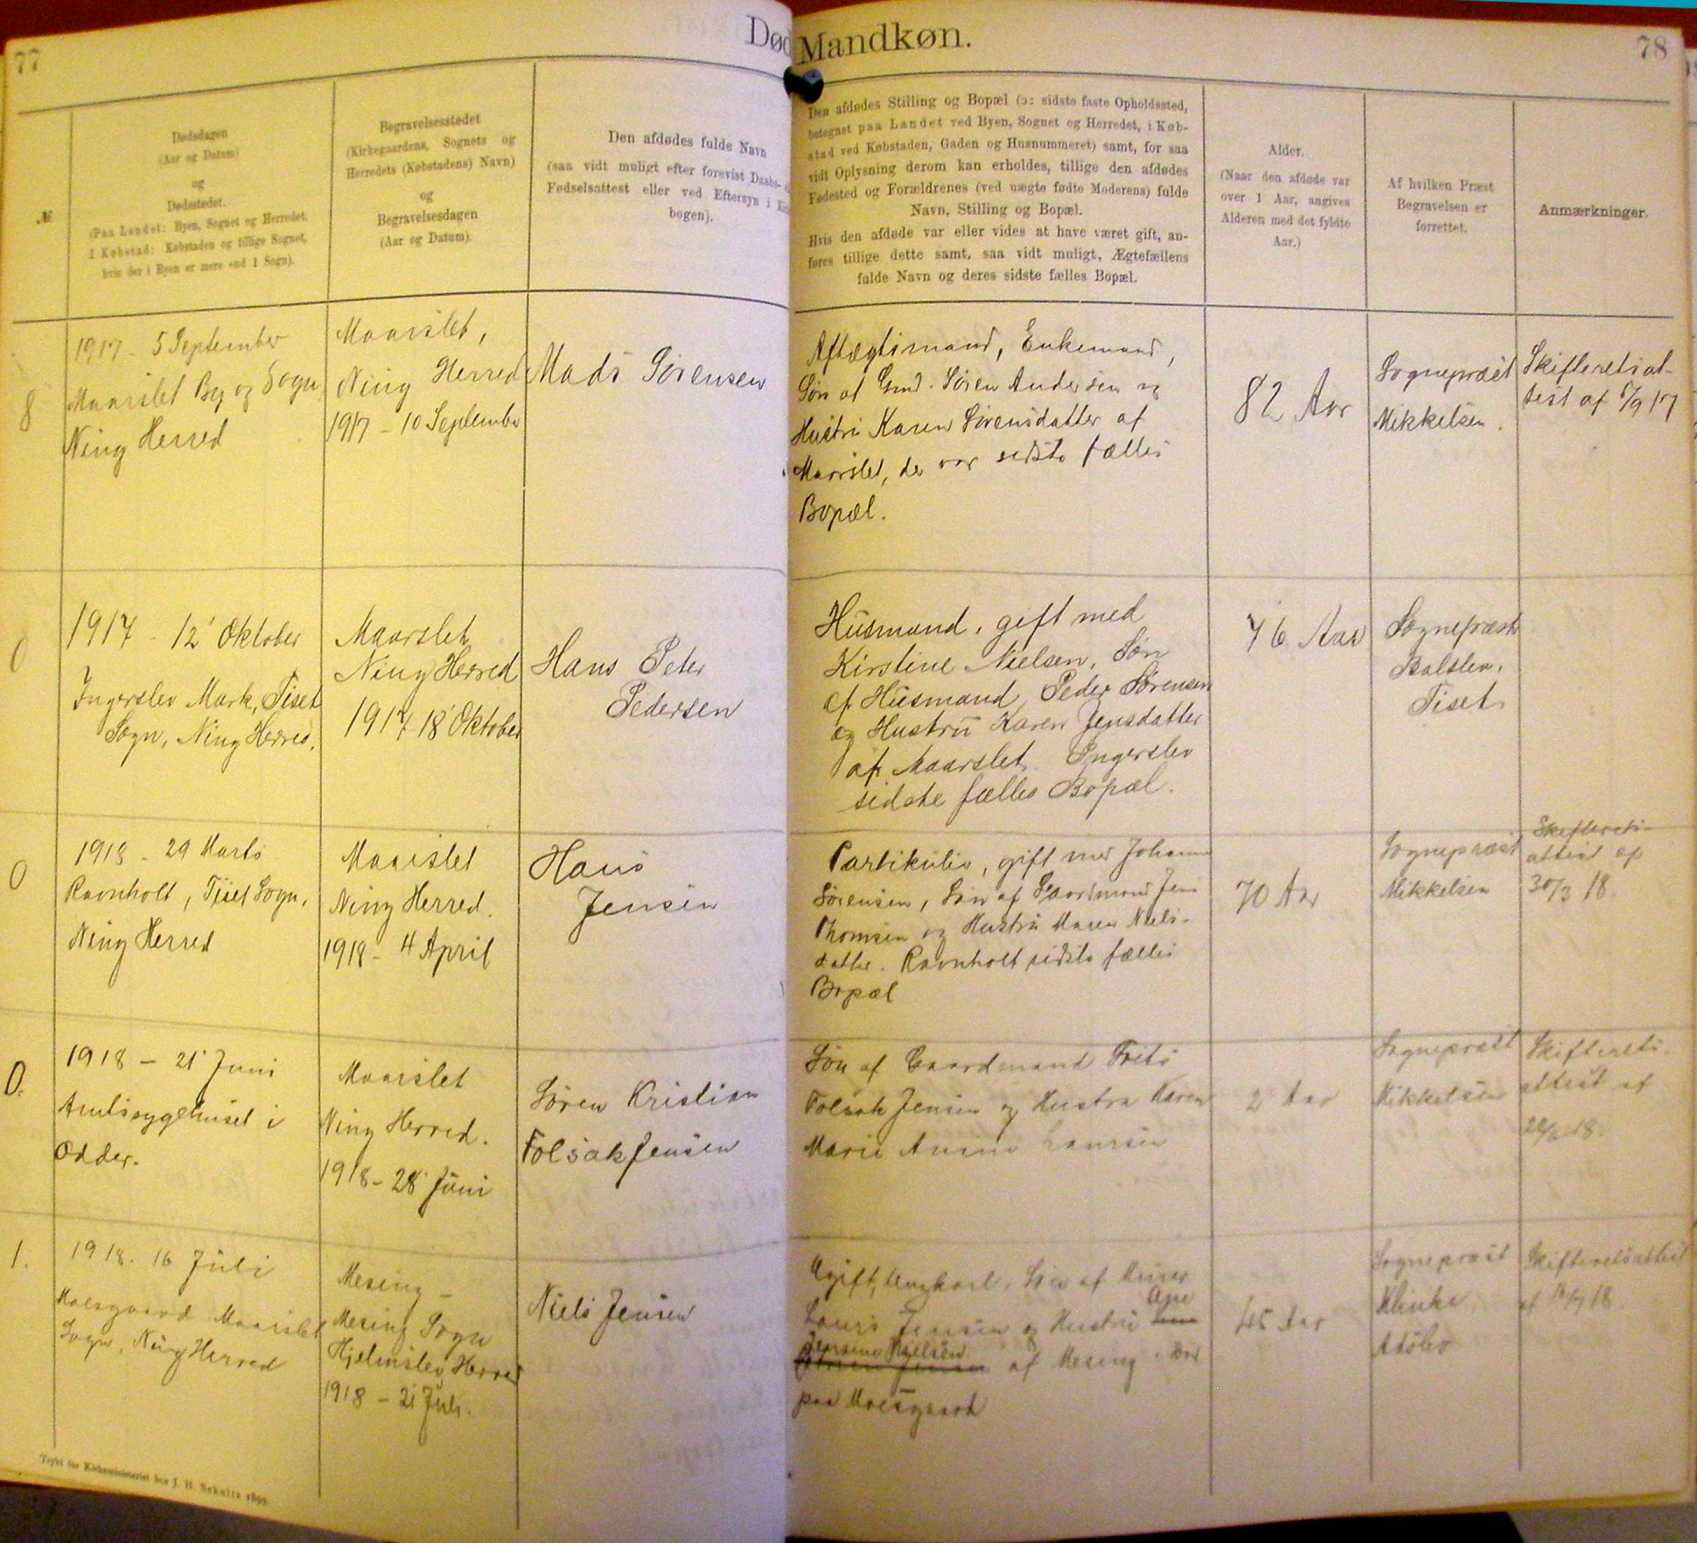 77
Død
Mandkøn.
78
№
Dødsdagen
(Aar og Datum)
og
Dødsstedet.
(Paa Landet: Byen, Sognet og Herredet.
I Købstad: Købstaden og tillige Sognet,
hvis der i Byen er mere end 1 Sogn).
Begravelsesstedet
(Kirkegaardens, Sognets og
Herredets (Købstadens) Navn)
og
Begravelsesdagen
(Aar og Datum).
Den afdødes fulde Navn
(saa vidt muligt efter forevist Daabs-
Fødselsattest eller ved Eftersyn i
bogen).
Den afdødes Stilling og Bopæl (ɔ: sidste faste Opholdssted,
betegnet paa Landet ved Byen, Sognet og Herredet, i Køb-
stad ved Købstaden, Gaden og Husnummeret) samt, for saa
vidt Oplysning derom kan erholdes, tillige den afdødes
Fødested og Forældrenes (ved uægte fødte Moderens) fulde
Navn, Stilling og Bopæl.
Hvis den afdøde var eller vides at have været gift, an-
føres tillige dette samt, saa vidt muligt, Ægtefællens
fulde Navn og deres sidste fælles Bopæl.
Alder.
(Naar den afdøde var
over 1 Aar, angives
Alderen med det fyldte
Aar.)
Af hvilken Præst
Begravelsen er
forrettet.
Anmærkninger.
8
1917 - 5 September
Maarslet By og Sogn
Ning Herred
Maarslet,
Ning Herred
1917 - 10 September
Mads Sørensen
Aftægtsmand, Enkemand,
Søn af Gmd. Søren Andersen og
Hustru Karen Sørensdatter af
Maarslet, der var sidste fælles
Bopæl.
82 Aar
Sognepræst
Mikkelsen.
Skifteretsat-
test af 6/9 17
0
1917 - 12' Oktober
Ingerslev Mark, Tiset
Sogn, Ning Herred.
Maarslet
Ning Herred
1917 18' Oktober
Hans Peter
Pedersen
Husmand, gift med
Kirstine Nielsen, Søn
af Husmand Peder Sørensen
og Hustru Karen Jensdatter
af Maarslet. Ingerslev
sidste fælles Bopæl.
76 Aar
Sognepræst
Balslev,
Tiset
0
1918 - 29 Marts
Ravnholt, Tiset Sogn,
Ning Herred
Maarslet
Ning Herred.
1918 - 4 April
Hans
Jensen
Partikulier, gift med Johanne
Sørensen, Søn af Gaardmand Jens
Thomsen og Hustru Maren Niels-
datter. Ravnholt sidste fælles
Bopæl
70 Aar
Sognepræst
Mikkelsen
Skifterets-
attest af
30/3 18.
0.
1918 - 21' Juni
Amtssygehuset i
Odder.
Maarslet
Ning Herred.
1918 - 28' Juni
Søren Kristian
Folsak Jensen
Søn af Gaardmand Frits
Folsak Jensen og Hustru Karen
Marie Laursen
2 Aar
Sognepræst
Mikkelsen
Skifterets-
attest af
1.
1918. 16 Juli
Moesgaard Maarslet
Sogn, Ning Herred
Mesing -
Mesing Sogn
Hjelmslev Herred
1918 - 21 Juli.
Niels Jensen
Ugift, Søn af Murer
Laurs Jensen og Hustru Ane
Jensine Nielsen af Mesing.
paa Moesgaard
45 Aar
Sognepræst
Adslev
Skifteretsattest